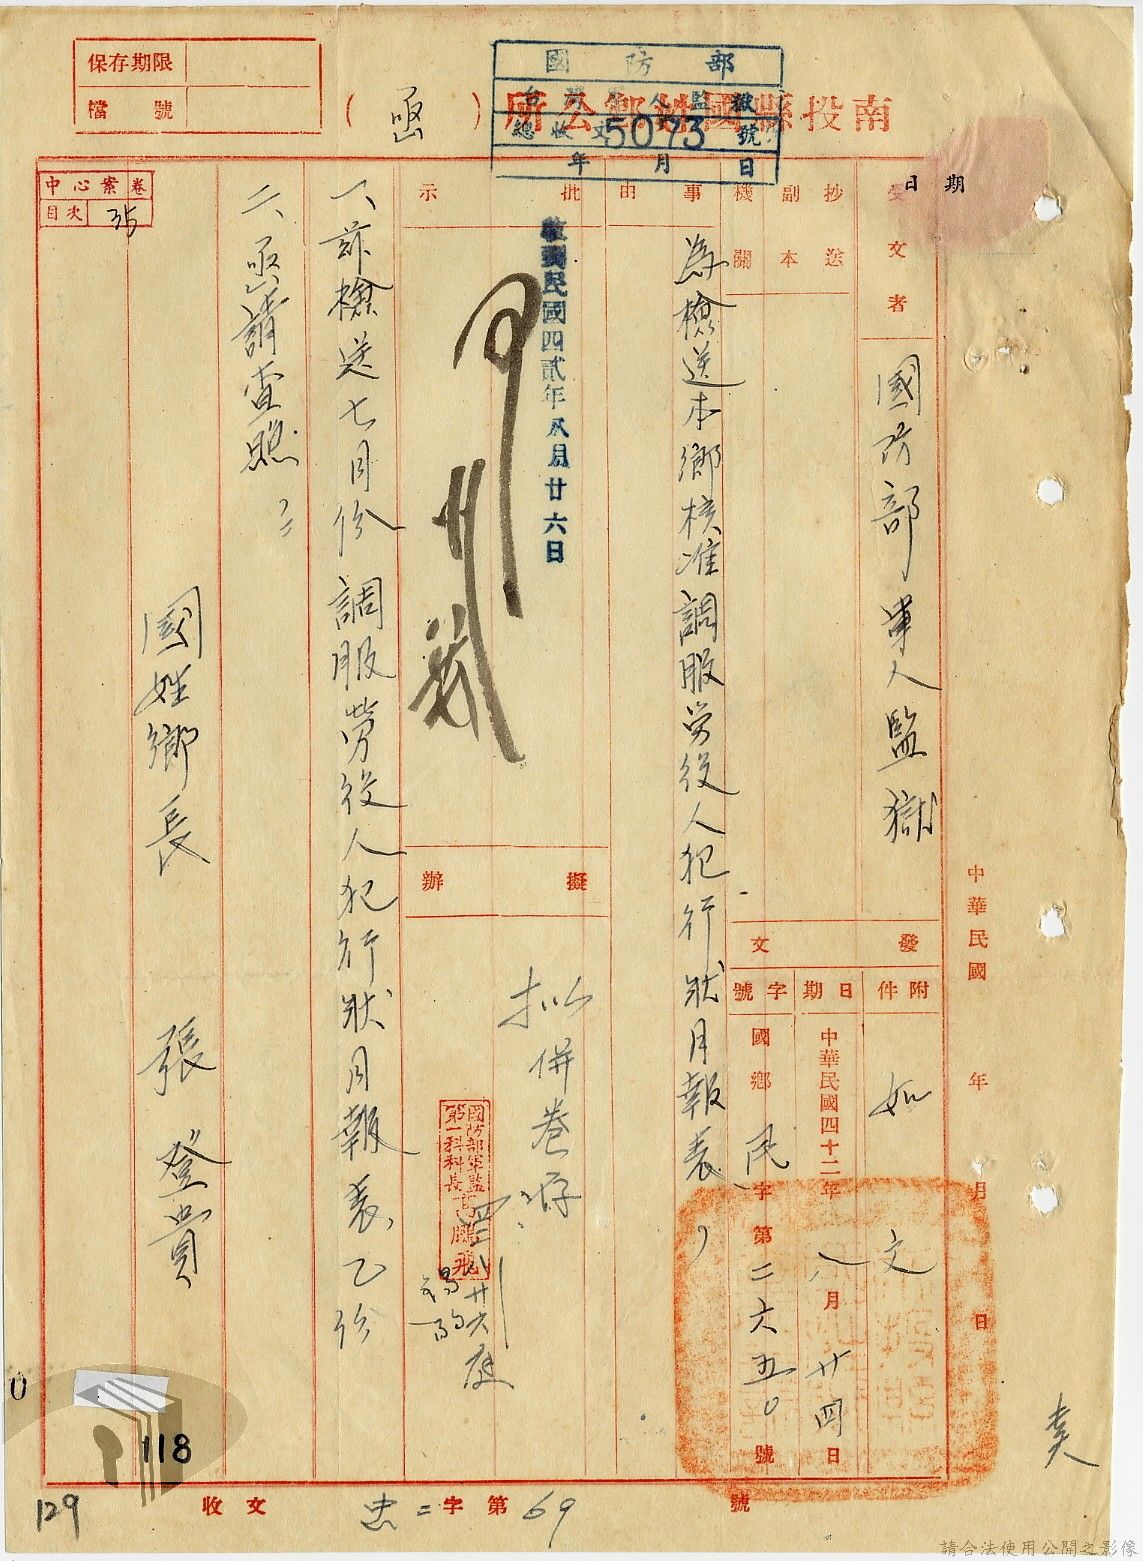 保存期限
檔號
南投縣國姓鄉公所
(函)
國防部
台灣軍人監獄
總收文5073號
年月日
日期
受文者
國防部軍人監獄
抄送副本機關
發文
附件
如文
日期
中華民國四十二年八月廿四日
字號
國鄉民字第二六五〇號
事由
為檢送本鄉核准調服勞役人犯行狀月報表
批示
收到民國四貳年八月廿六日
擬辦
擬併卷存
國防部軍監
第一科科長
一、茲檢送七月份調服勞役人犯行狀月報表乙份
二、函請查照
國姓鄉長 張登貴
中心案卷
目次 35
中華民國 年 月 日
收文 忠二字第69號
118
129
請合法使用公開之影像